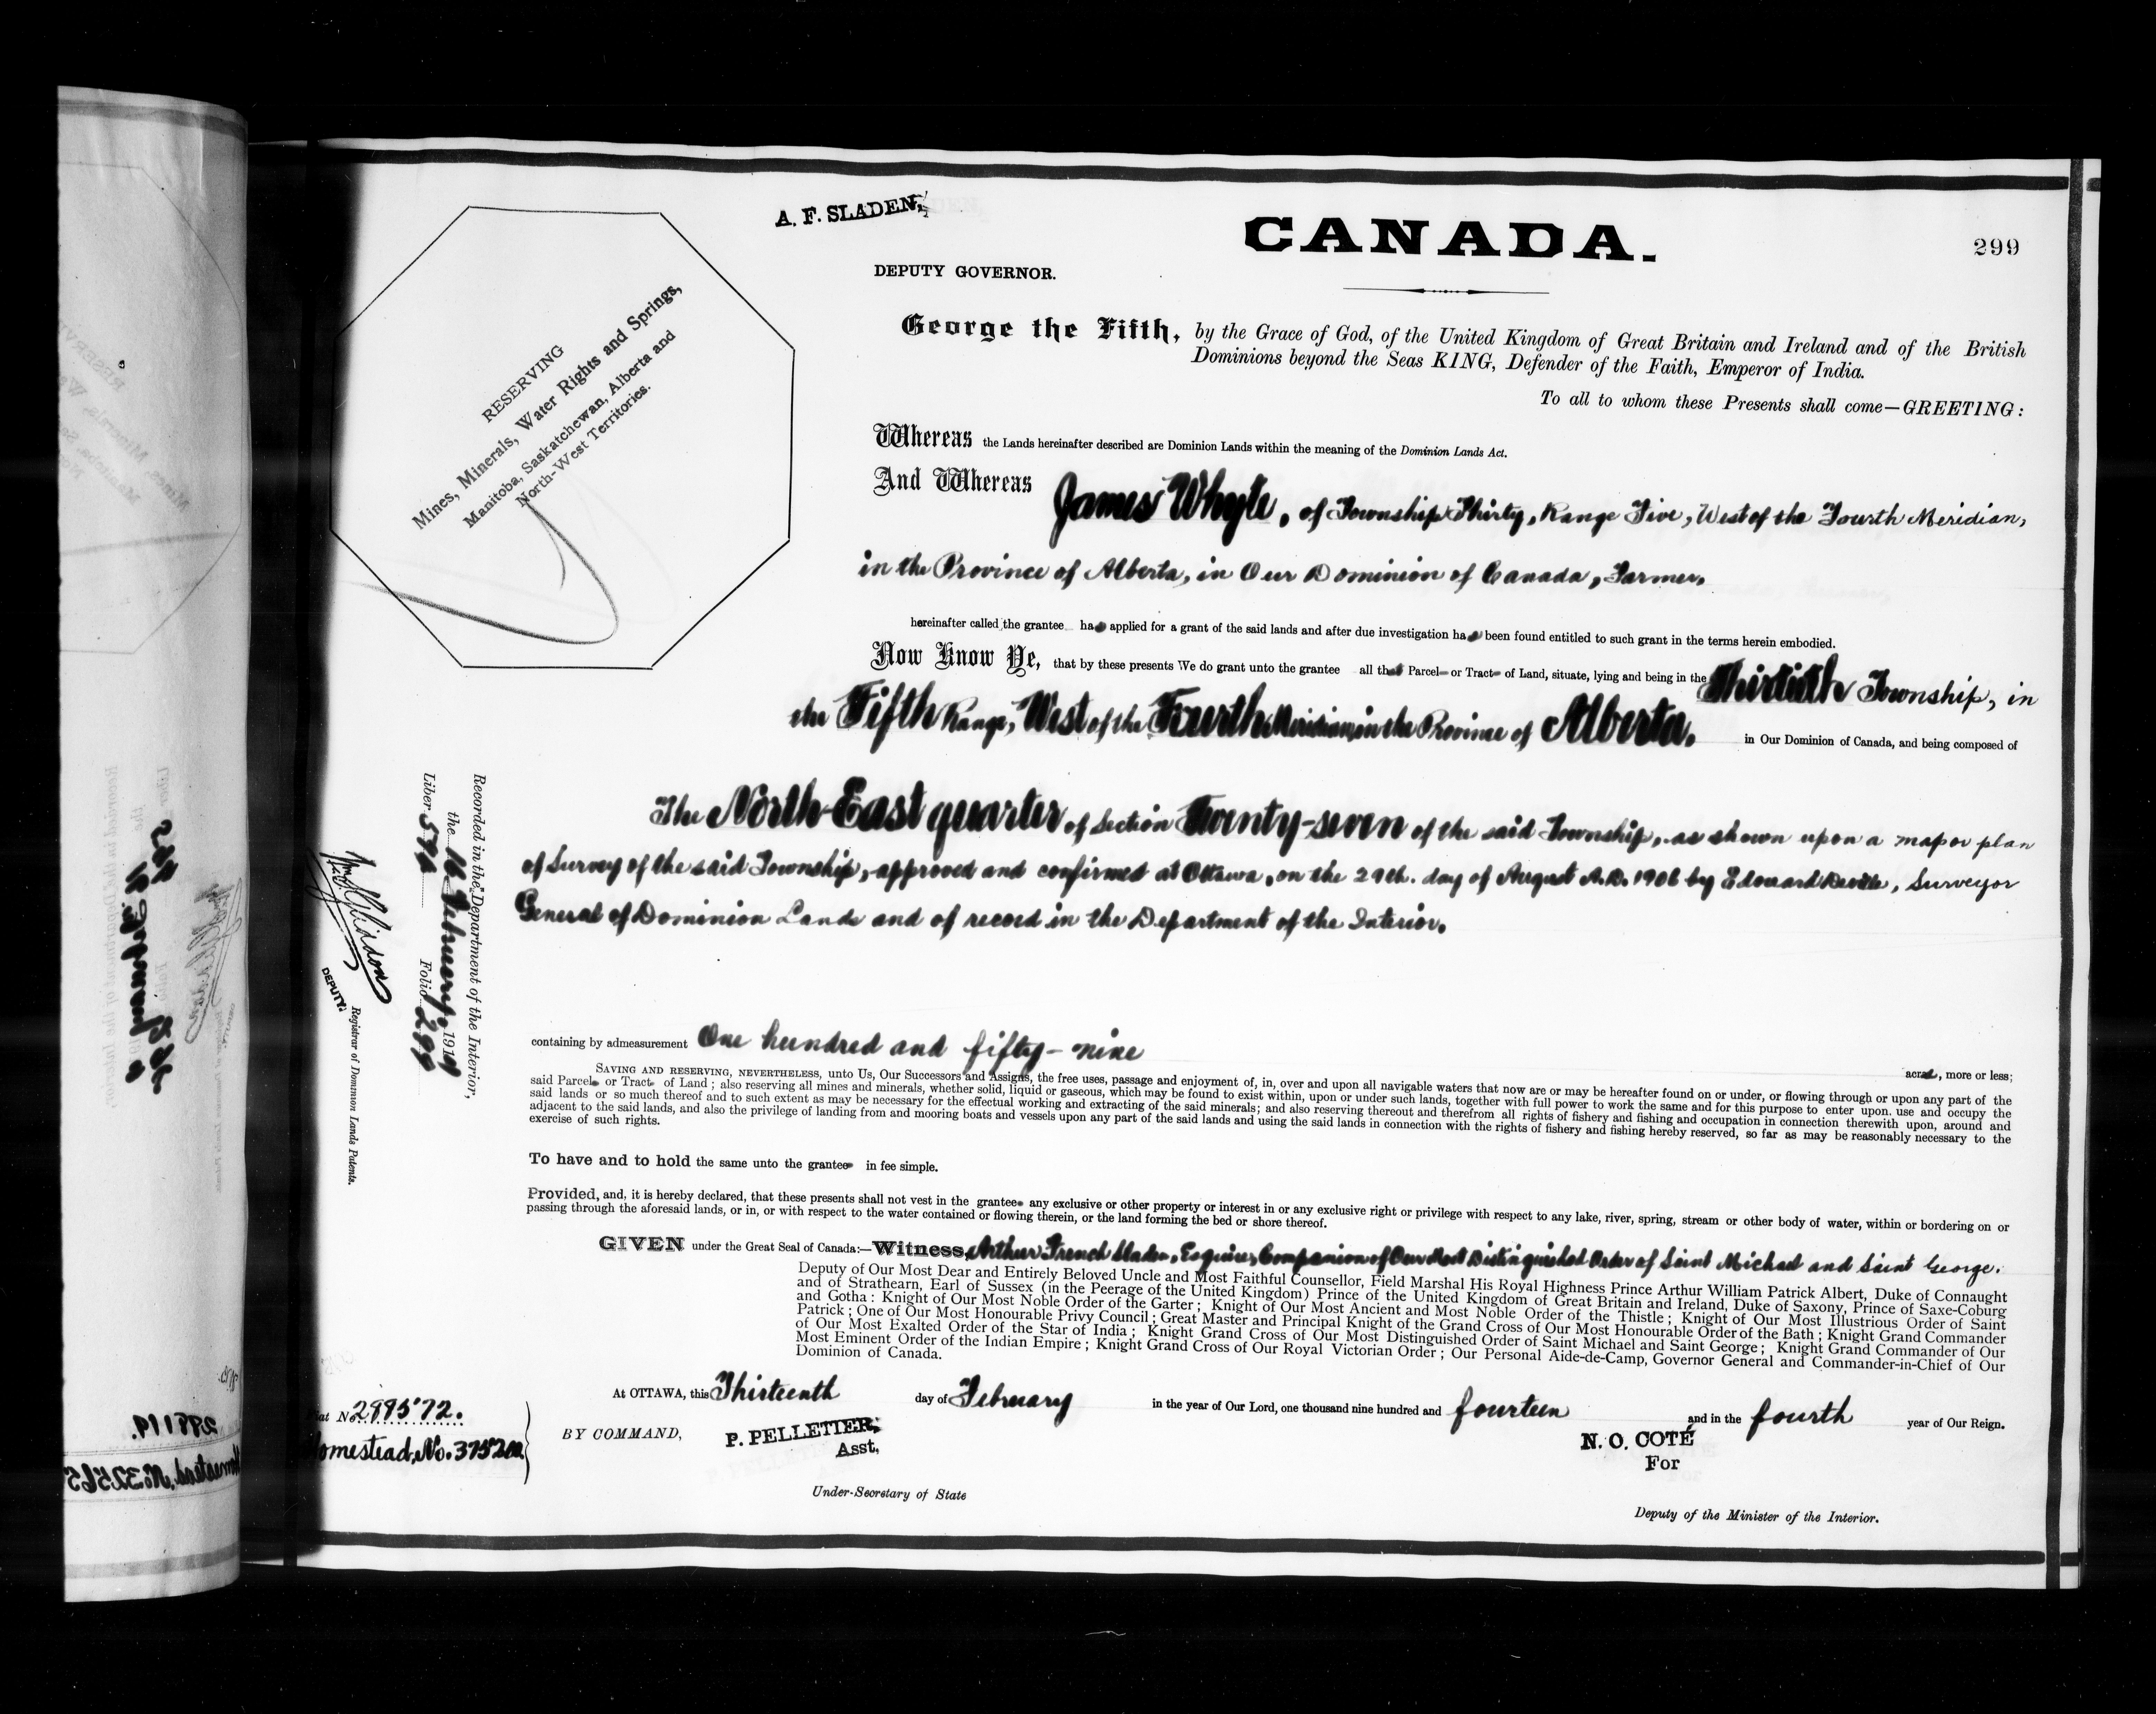 A. F. SLADEN,
DEPUTY GOVERNOR.
CANADA.
299
RESERVING
Mines, Minerals, Water Rights and Springs,
Manitoba, Saskatchewan, Alberta and
North-West Territories.
George the Fifth, by the Grace of God, of the United Kingdom of Great Britain and Ireland and of the British
Dominions beyond the Seas KING, Defender of the Faith, Emperor of India.
To all to whom these Presents shall come—GREETING:
Whereas the Lands hereinafter described are Dominion Lands within the meaning of the Dominion Lands Act.
And Whereas James Whyte, of Township Thirty, Range Five, West of the Fourth Meridian,
in the Province of Alberta, in Our Dominion of Canada, Farmer,
hereinafter called the grantee has applied for a grant of the said lands and after due investigation has been found entitled to such grant in the terms herein embodied.
Now Know Ye, that by these presents We do grant unto the grantee all that Parcel or Tract of Land, situate, lying and being in the Thirtieth Township, in
the Fifth Range, West of the Fourth Meridian, in the Province of Alberta, in Our Dominion of Canada, and being composed of
The North-East quarter of Section Twenty-seven of the said Township, as shown upon a map or plan
of Survey of the said Township, approved and confirmed at Ottawa, on the 29th. day of August A.D. 1906 by Edouard Deville, Surveyor
General of Dominion Lands and of record in the Department of the Interior.
containing by admeasurement One hundred and fifty-nine
acres, more or less;
SAVING AND RESERVING, NEVERTHELESS, unto Us, Our Successors and Assigns, the free uses, passage and enjoyment of, in, over and upon all navigable waters that now are or may be hereafter found on or under, or flowing through or upon any part of the
said Parcel or Tract of Land; also reserving all mines and minerals, whether solid, liquid or gaseous, which may be found to exist within, upon or under such lands, together with full power to work the same and for this purpose to enter upon. use and occupy the
said lands or so much thereof and to such extent as may be necessary for the effectual working and extracting of the said minerals; and also reserving thereout and therefrom all rights of fishery and fishing and occupation in connection therewith upon, around and
adjacent to the said lands, and also the privilege of landing from and mooring boats and vessels upon any part of the said lands and using the said lands in connection with the rights of fishery and fishing hereby reserved, so far as may be reasonably necessary to the
exercise of such rights.
To have and to hold the same unto the grantee in fee simple.
Provided, and, it is hereby declared, that these presents shall not vest in the grantee any exclusive or other property or interest in or any exclusive right or privilege with respect to any lake, river, spring, stream or other body of water, within or bordering on or
passing through the aforesaid lands, or in, or with respect to the water contained or flowing therein, or the land forming the bed or shore thereof.
GIVEN under the Great Seal of Canada:—Witness, Arthur French Sladen, Esquire, Companion of Our Most Distinguished Order of Saint Michael and Saint George,
Deputy of Our Most Dear and Entirely Beloved Uncle and Most Faithful Counsellor, Field Marshal His Royal Highness Prince Arthur William Patrick Albert, Duke of Connaught
and of Strathearn, Earl of Sussex (in the Peerage of the United Kingdom) Prince of the United Kingdom of Great Britain and Ireland, Duke of Saxony, Prince of Saxe-Coburg
and Gotha: Knight of Our Most Noble Order of the Garter; Knight of Our Most Ancient and Most Noble Order of the Thistle; Knight of Our Most Illustrious Order of Saint
Patrick; One of Our Most Honourable Privy Council; Great Master and Principal Knight of the Grand Cross of Our Most Honourable Order of the Bath; Knight Grand Commander
of Our Most Exalted Order of the Star of India; Knight Grand Cross of Our Most Distinguished Order of Saint Michael and Saint George; Knight Grand Commander of Our
Most Eminent Order of the Indian Empire; Knight Grand Cross of Our Royal Victorian Order; Our Personal Aide-de-Camp, Governor General and Commander-in-Chief of Our
Dominion of Canada.
At OTTAWA, this Thirteenth day of February in the year of Our Lord, one thousand nine hundred and fourteen and in the fourth year of Our Reign.
BY COMMAND,
P. PELLETIER,
Asst,
Under-Secretary of State
N. O. COTÉ
For
Deputy of the Minister of the Interior.
Recorded in the Department of the Interior,
the 16 February, 1914
Liber 594 Folio 299
DEPUTY.
Registrar of Dominion Lands Patents.
No. 299572.
Homestead, No.